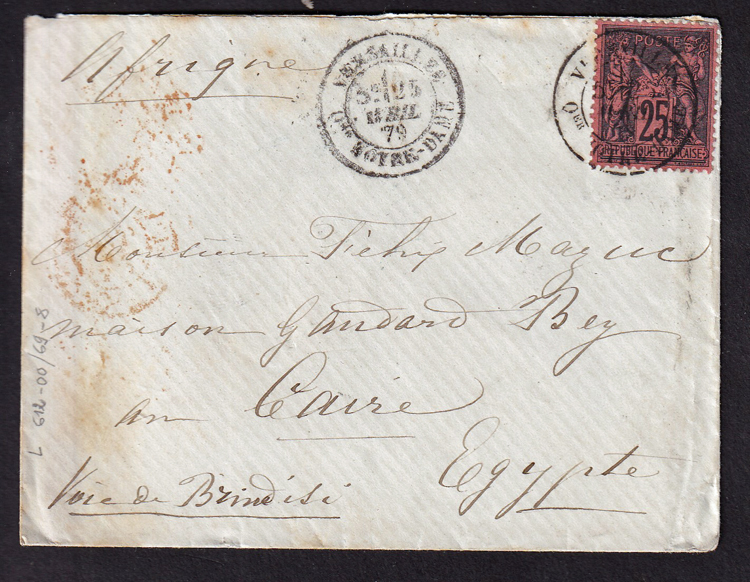 Afrique
VERSAILLES
25
AVRIL
79
Qer NOTRE-DAME
POSTES
25
REPUBLIQUE FRANCAISE
Monsieur Félix Mazuc
maison Gandard Bey
au Caire
Egypte
Voie de Brindisi
L 612-00/69-8